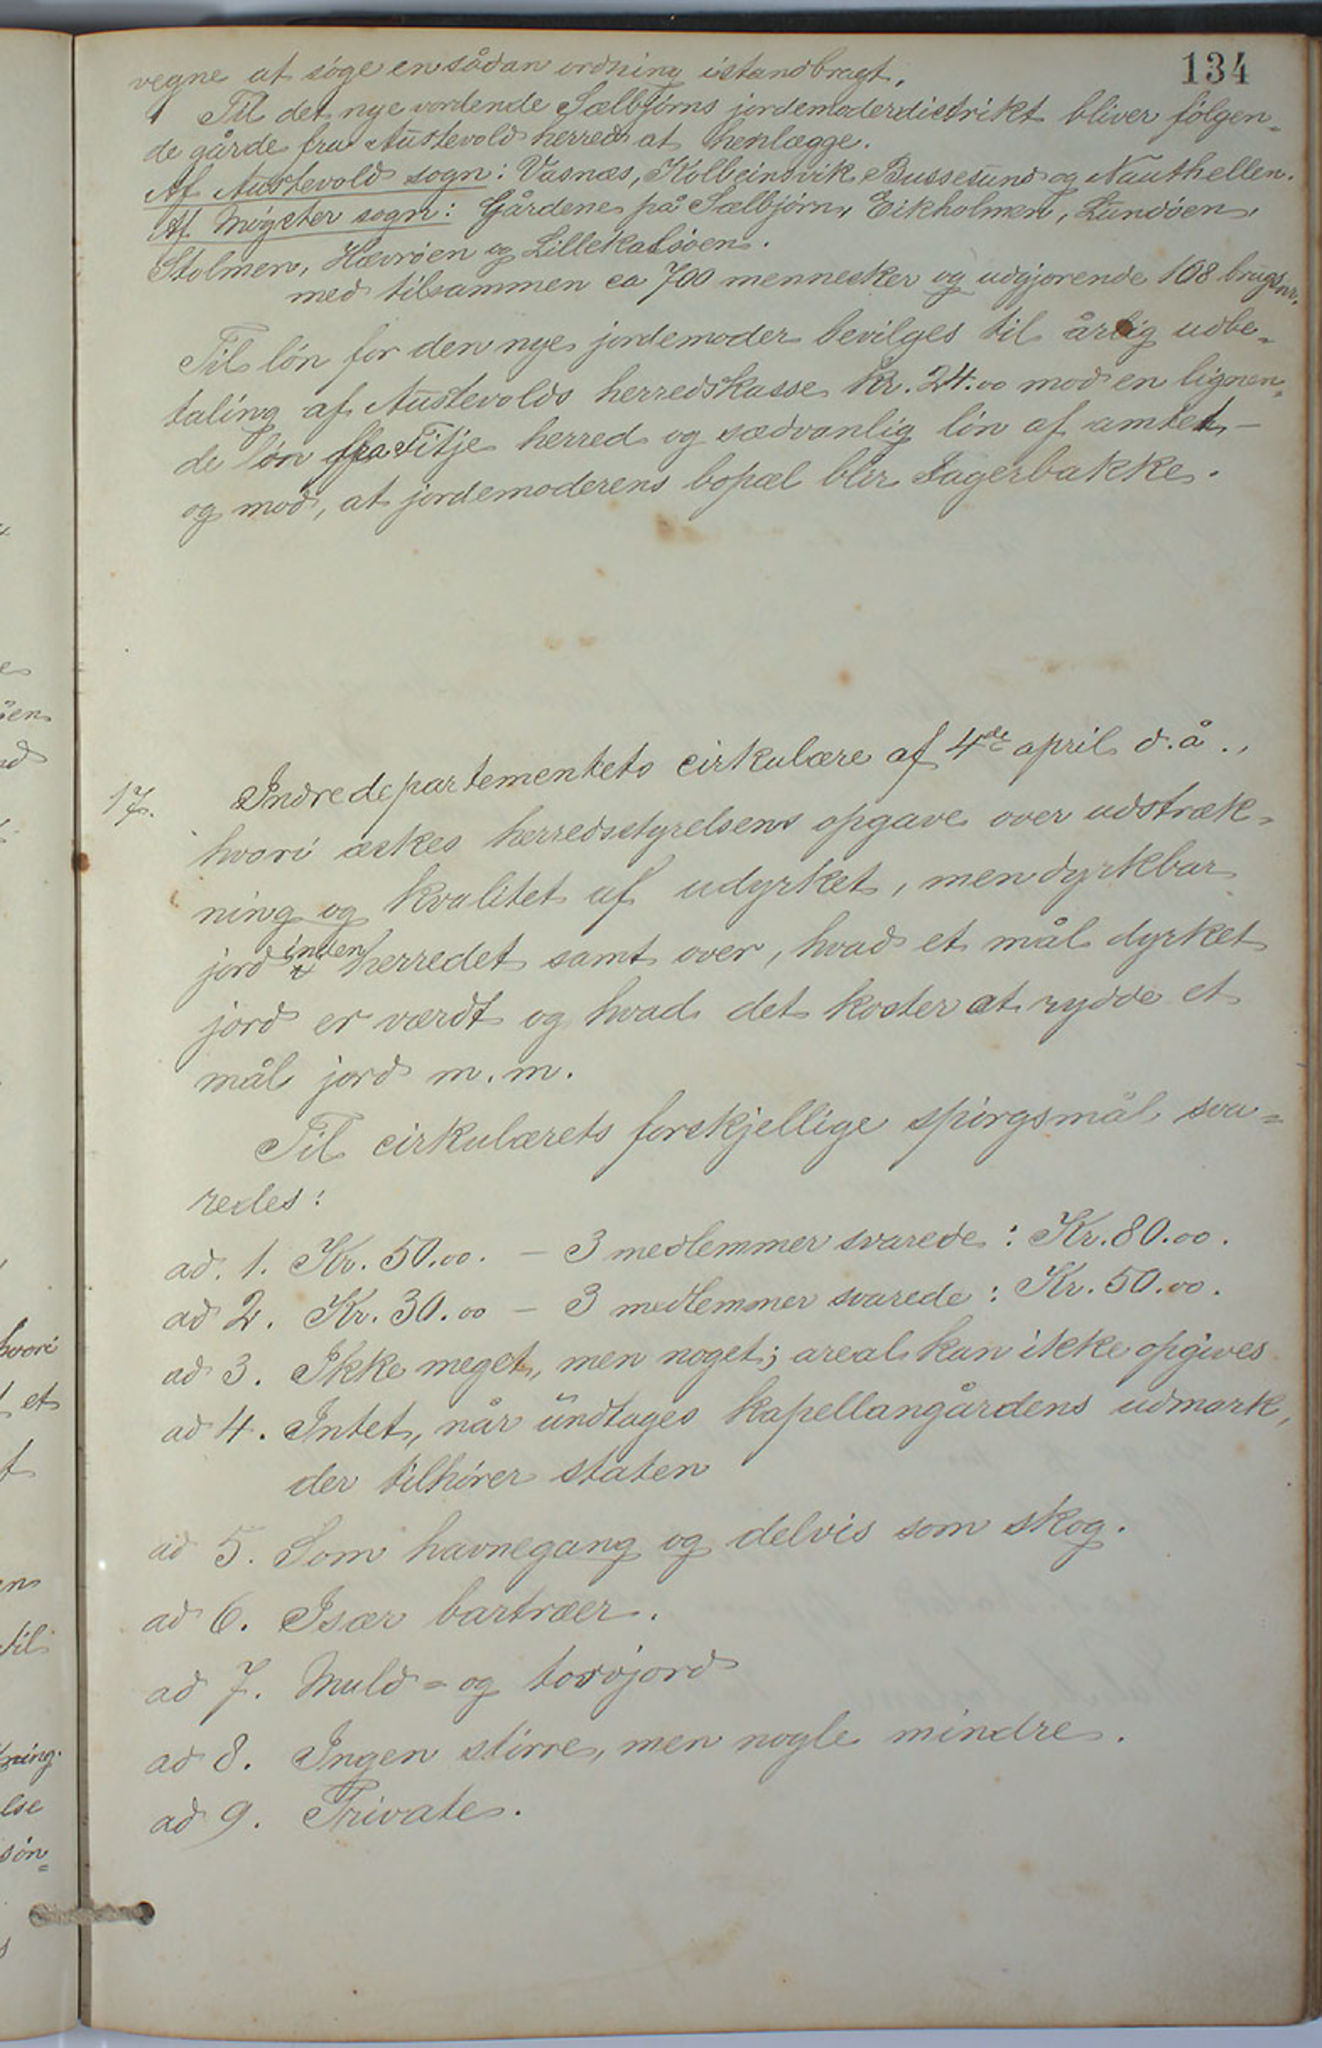 134
vegne at søge en sådan ordning istandbragt.
Til det nye vordende Sælbjørns jordemoderdistrikt bliver følgen-
de gårde fra Austevold herred at henlægge.
Af Austevold sogn: Vasnæs, Kolbeinsvik, Bussesund og Nauthellen.
Af Møgster sogn: Gårdene på Sælbjørn, Eikholmen, Lundøen,
Stolmen, Hævrøen og Lillekalsøen.
med tilsammen ca 700 mennesker og udgjørende 108 brugsnr.
Til løn for den nye jordemoder bevilges til årlig udbe-
taling af Austevolds herredskasse kr. 24.00 mod en lignen-
de løn fra Fitje herred og sædvanlig løn af amtet –
og mod, at jordemoderens bopæl blir Fagerbakke.
17. Indredepartementets cirkulære af 4de april d.å.,
hvori æskes herredsstyrelsens opgave over udstræk-
ning og kvalitet af udyrket, men dyrkbar
jord inden herredet samt over, hvad et mål dyrket
jord er værdt og hvad det koster at rydde et
mål jord m.m.
Til cirkulærets forskjellige spørgsmål sva=
redes:
ad. 1. Kr. 50.00. – 3 medlemmer svarede: Kr. 80.00.
ad 2. Kr. 30.00 – 3 medlemmer svarede: Kr. 50.00.
ad 3. Ikke meget, men noget; areal kan ikke opgives
ad 4. Intet, når undtages kapellangårdens udmark,
der tilhører staten
ad 5. Som havnegang og delvis som skog.
ad 6. Især bartræer.
ad 7. Muld= og torvjord
ad 8. Ingen større, men nogle mindre.
ad 9. Private.